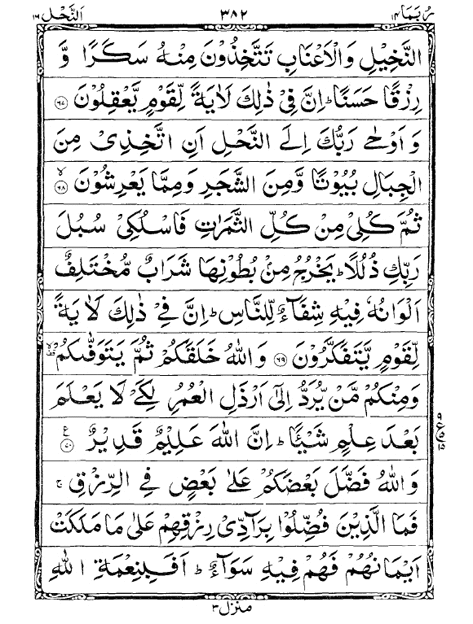 رُبَمَا ۱۴ ۳۸۲ اَلنَّحْل ۱۶
النَّخِيْلِ وَالْاَعْنَابِ تَتَّخِذُوْنَ مِنْهُ سَكَرًا وَّ
رِزْقًا حَسَنًا ؕ اِنَّ فِىْ ذٰلِكَ لَاٰيَةً لِّقَوْمٍ يَّعْقِلُوْنَ ﴿۶۷﴾
وَ اَوْحٰى رَبُّكَ اِلَى النَّحْلِ اَنِ اتَّخِذِىْ مِنَ
الْجِبَالِ بُيُوْتًا وَّمِنَ الشَّجَرِ وَمِمَّا يَعْرِشُوْنَ ﴿۶۸﴾ۙ
ثُمَّ كُلِىْ مِنْ كُلِّ الثَّمَرٰتِ فَاسْلُكِىْ سُبُلَ
رَبِّكِ ذُلُلًا ؕ يَخْرُجُ مِنْۢ بُطُوْنِهَا شَرَابٌ مُّخْتَلِفٌ
اَلْوَانُهٗ فِيْهِ شِفَآءٌ لِّلنَّاسِ ؕ اِنَّ فِىْ ذٰلِكَ لَاٰيَةً
لِّقَوْمٍ يَّتَفَكَّرُوْنَ ﴿۶۹﴾ وَاللّٰهُ خَلَقَكُمْ ثُمَّ يَتَوَفّٰىكُمْ ۙ
وَمِنْكُمْ مَّنْ يُّرَدُّ اِلٰٓى اَرْذَلِ الْعُمُرِ لِكَىْ لَا يَعْلَمَ
بَعْدَ عِلْمٍ شَيْـًٔا ؕ اِنَّ اللّٰهَ عَلِيْمٌ قَدِيْرٌ ﴿۷۰﴾ ع
وَاللّٰهُ فَضَّلَ بَعْضَكُمْ عَلٰى بَعْضٍ فِى الرِّزْقِ ۚ
فَمَا الَّذِيْنَ فُضِّلُوْا بِرَآدِّىْ رِزْقِهِمْ عَلٰى مَا مَلَكَتْ
اَيْمَانُهُمْ فَهُمْ فِيْهِ سَوَآءٌ ؕ اَفَبِنِعْمَةِ اللّٰهِ
منزل ۳